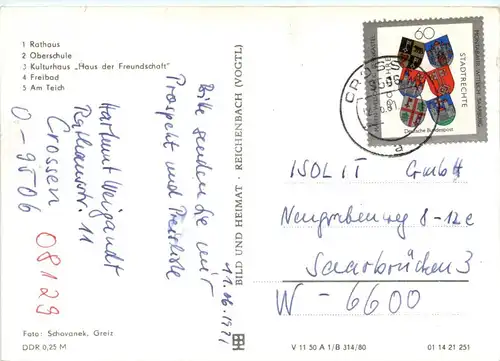 1 Rathaus
2 Oberschule
3 Kulturhaus „Haus der Freundschaft"
4 Freibad
5 Am Teich
Bitte senden Sie mir
Prospekt und Preisliste
11.06.1991
Hartmut Weigandt
Rathausstr. 11
Crossen
O-9506
08129
Foto: Schovanek, Greiz
DDR 0,25 M
BILD UND HEIMAT · REICHENBACH (VOGTL)
60
STADTRECHTE
Deutsche Bundespost
CROSSEN
a
ISOLIT GmbH
Neugrabenweg 8-12c
Saarbrücken 3
W-6600
V 11 50 A 1/B 314/80
01 14 21 251